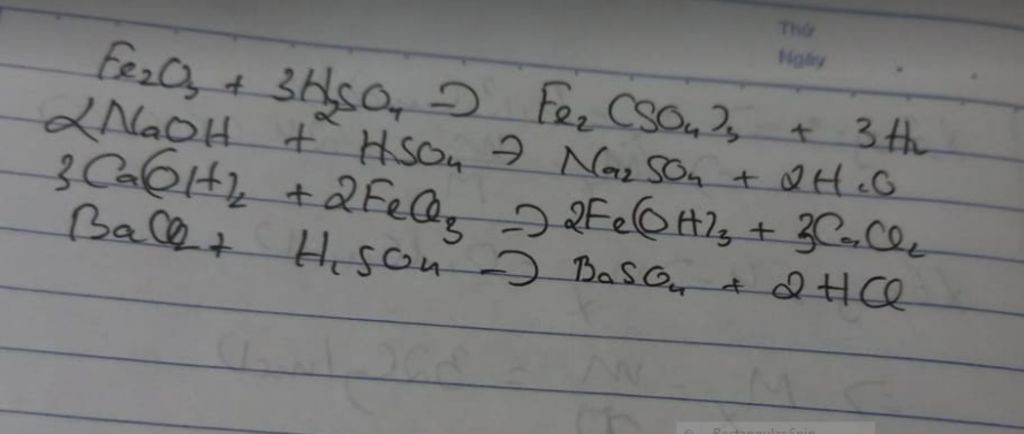 Thứ
Ngày
Fe₂O₃ + 3H₂SO₄ ⇒ Fe₂(SO₄)₃ + 3H
2NaOH + H₂SO₄ → Na₂SO₄ + 2H₂O
3Ca(OH)₂ + 2FeCl₃ ⇒ 2Fe(OH)₃ + 3CaCl₂
BaCl₂ + H₂SO₄ ⇒ BaSO₄ + 2HCl